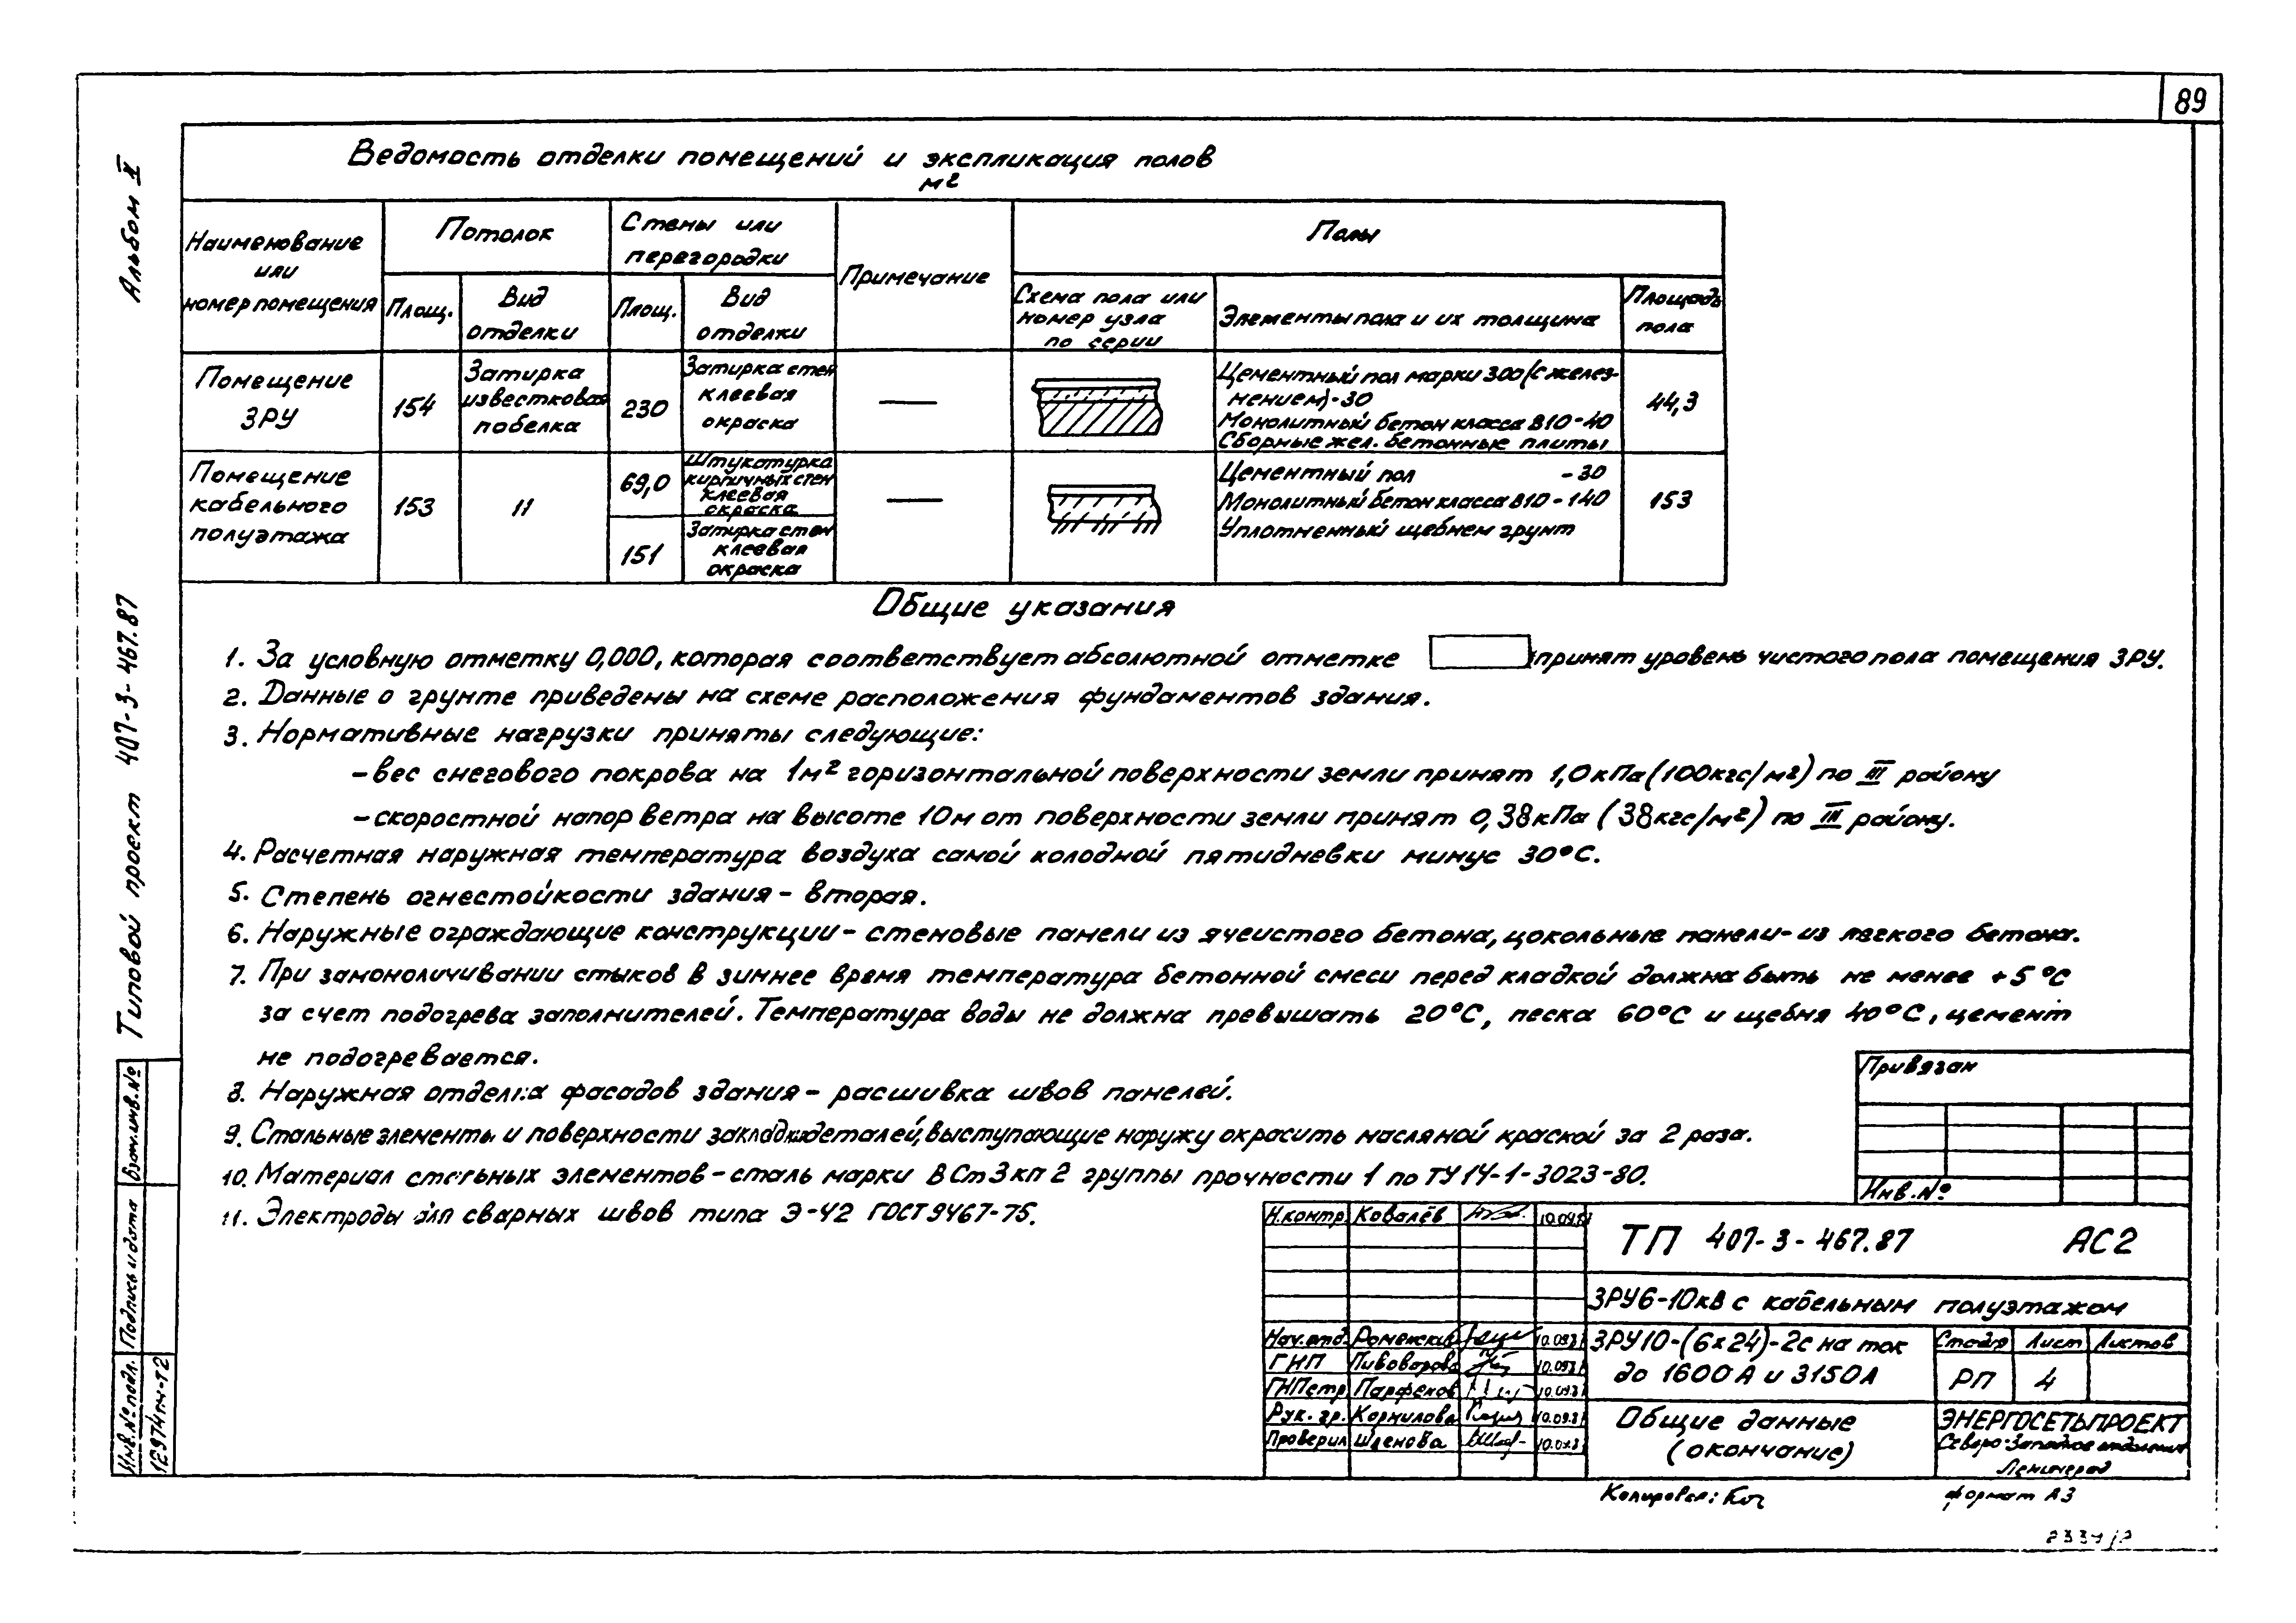 89
Альбом II
Типовой проект 407-3-467.87
Ведомость отделки помещений и экспликация полов
м²
Наименование или номер помещения
Потолок
Стены или перегородки
Примечание
Полы
Площ.
Вид отделки
Площ.
Вид отделки
Схема пола или номер узла по серии
Элементы пола и их толщина
Площадь пола
Помещение ЗРУ
154
Затирка известковая побелка
230
Затирка стен клеевая окраска
—
Цементный пол марки 300 (с желез-
нением)-30
Монолитный бетон класса В10-40
Сборные жел. бетонные плиты
44,3
Помещение кабельного полуэтажа
153
"
69,0
Штукатурка кирпичных стен клеевая окраска
151
Затирка стен клеевая окраска
—
Цементный пол -30
Монолитный бетон класса В10-140
Уплотненный щебнем грунт
153
Общие указания
1. За условную отметку 0,000, которая соответствует абсолютной отметке принят уровень чистого пола помещения ЗРУ.
2. Данные о грунте приведены на схеме расположения фундаментов здания.
3. Нормативные нагрузки приняты следующие:
-вес снегового покрова на 1м² горизонтальной поверхности земли принят 1,0кПа (100кгс/м²) по III району
-скоростной напор ветра на высоте 10м от поверхности земли принят 0,38кПа (38кгс/м²) по III району.
4. Расчетная наружная температура воздуха самой холодной пятидневки минус 30°С.
5. Степень огнестойкости здания - вторая.
6. Наружные ограждающие конструкции - стеновые панели из ячеистого бетона, цокольные панели - из легкого бетона.
7. При замоноличивании стыков в зимнее время температура бетонной смеси перед кладкой должна быть не менее +5°С
за счет подогрева заполнителей. Температура воды не должна превышать 20°С, песка 60°С и щебня 40°С, цемент
не подогревается.
8. Наружная отделка фасадов здания - расшивка швов панелей.
9. Стальные элементы и поверхности закладных деталей, выступающие наружу окрасить масляной краской за 2 раза.
10. Материал стальных элементов - сталь марки ВСт3кп2 группы прочности 1 по ТУ14-1-3023-80.
11. Электроды для сварных швов типа Э-42 ГОСТ 9467-75.
Привязан
Инв.№
Н.контр. Ковалёв
Нач.отд.
ГИП Пивоварова
Парфенов
Рук. гр. Корнилова
Проверил Шленова
ТП 407-3-467.87 АС2
ЗРУ6-10кВ с кабельным полуэтажом
ЗРУ10-(6х24)-2с на ток
до 1600А и 3150А
Стадия Лист Листов
РП 4
Общие данные
(окончание)
ЭНЕРГОСЕТЬПРОЕКТ
Северо-Западное отделение
Ленинград
Копировал:
формат А3
Взам.инв.№
Подпись и дата
Инв.№подл.
12974тм-т2